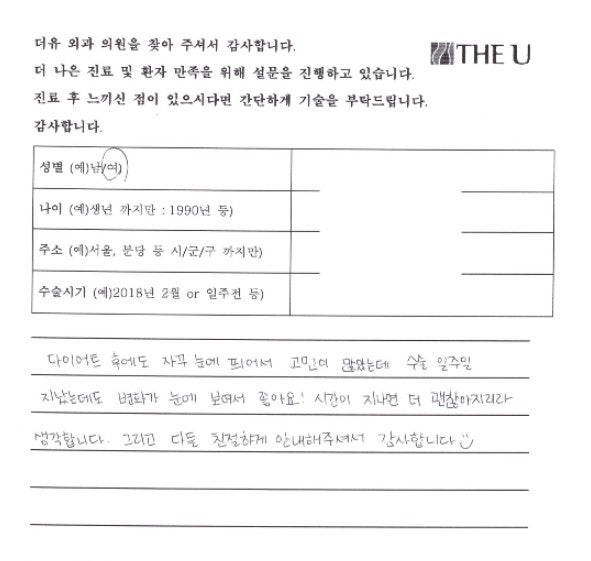 더유 외과 의원을 찾아 주셔서 감사합니다.
THE U
더 나은 진료 및 환자 만족을 위해 설문을 진행하고 있습니다.
진료 후 느끼신 점이 있으시다면 간단하게 기술을 부탁드립니다.
감사합니다.
성별 (예)남/여)
나이 (예)생년 까지만 : 1990년 등)
주소 (예)서울, 분당 등 시/군/구 까지만)
수술시기 (예)2018년 2월 or 일주전 등)
다이어트 후에도 자꾸 눈에 띄어서 고민이 많았는데 수술 일주일
지났는데도 변화가 눈에 보여서 좋아요! 시간이 지나면 더 괜찮아지리라
생각합니다. 그리고 다들 친절하게 안내해주셔서 감사합니다